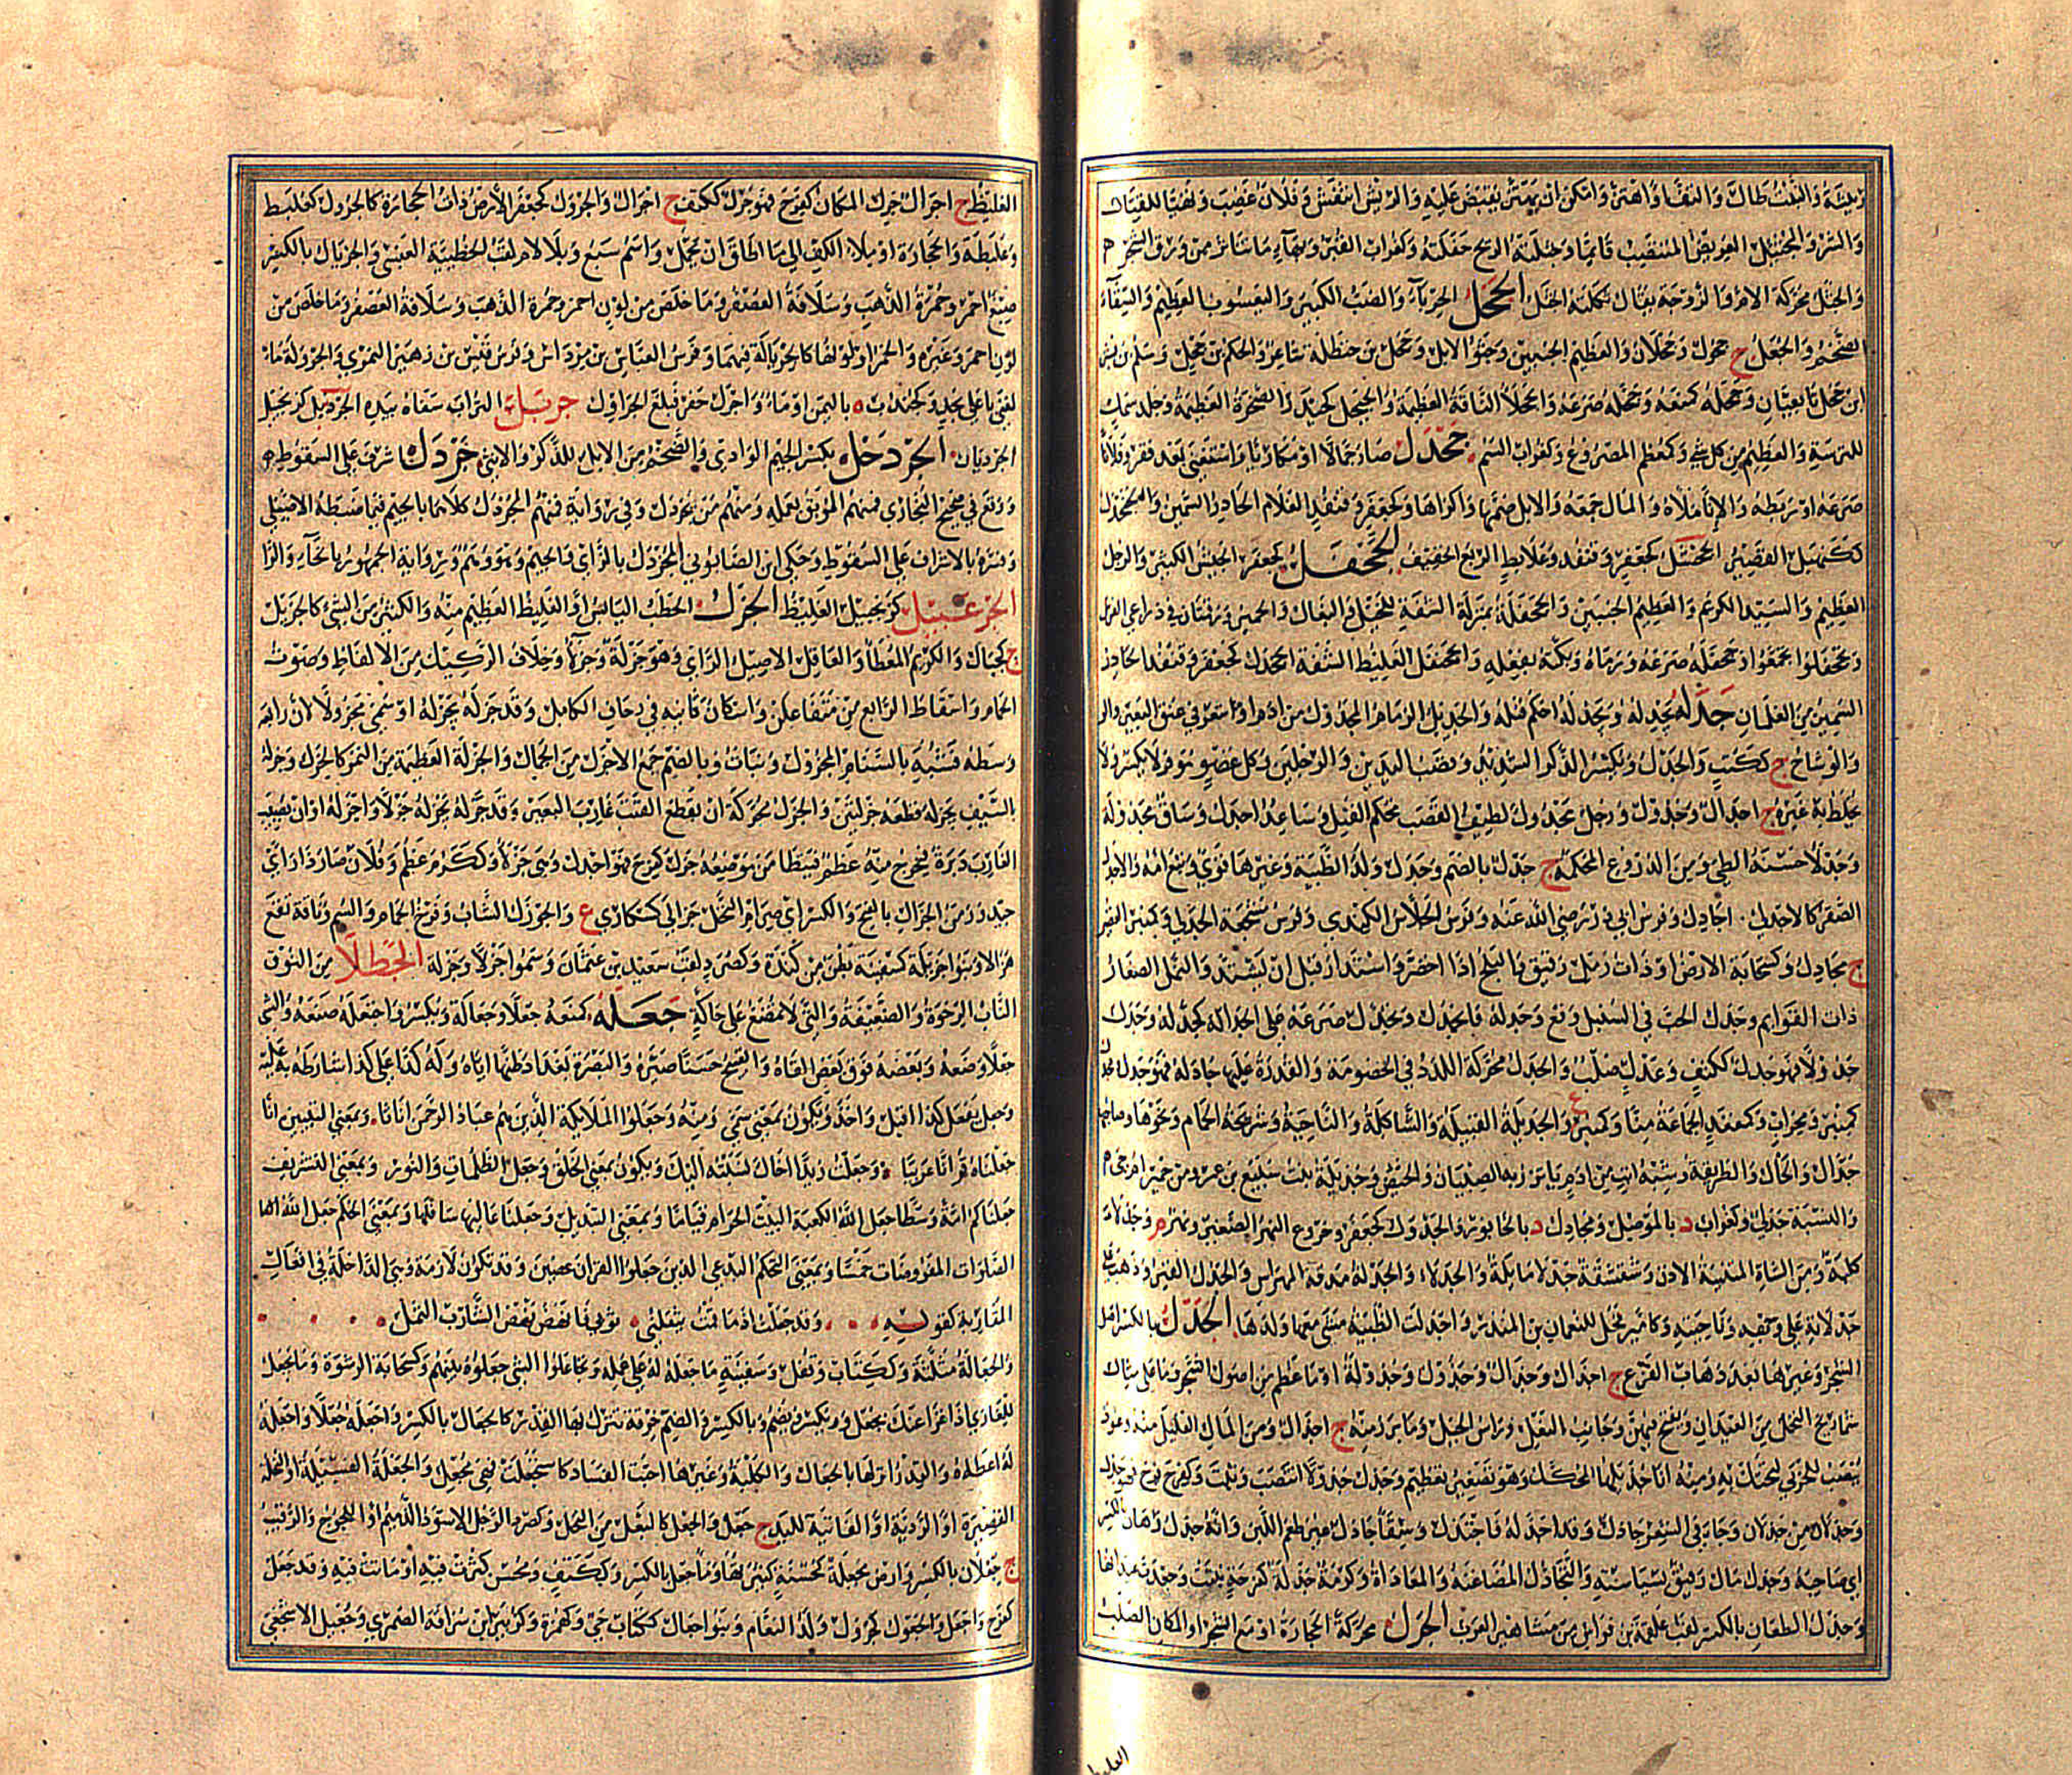 والنبت طال والتف او اهتز وامكن ان يقبض عليه والريش انتفش وفلان غضب وتهيا للقتال
والشر والمجثئل العريض والمنتصب قائما وجثلته الريح جفلته وكغراب القبر وبهاء ما تناثر من ورق الشجر م
والجثل محركة الام والزوجة يقال ثكلته الجثل الجحل الحرباء والضب الكبير واليعسوب العظيم والسقاء
الضخم والجعل ج جحول وجحلان والعظيم الجنبين وحثو الابل وجحل بن حنظلة شاعر والحكم بن جحل وسلم بن بشر
ابن جحل تابعيان وجحله كمنعه وجحله صرعه والجحلاء الناقة العظيمة والجيحل كحيدر الصخرة العظيمة وجلد سمك
للترسة والعظيم من كل شيء وكمعظم المصروع وكغراب السم جحدل صار جمالا او مكاريا واستغنى بعد فقر وفلانا
صرعه او ربطه والاناء ملأه والمال جمعه والابل ضمها واكراها وكجعفر وقنفذ الغلام الحادر السمين والمجحدل
ككنهبل القصير الجحشل كجعفر وقنفذ وعلابط السريع الخفيف الجحفل كجعفر الجيش الكبير والرجل
العظيم والسيد الكريم والعظيم الجنبين والجحفلة بمنزلة الشفة للخيل والبغال والحمير ورقمتان في ذراعي الفرس
وتجحفلوا تجمعوا وجحفله صرعه ورماه وبكته بفعله والجحنفل الغليظ الشفة الجخدل كجعفر وقنفذ الحادر
السمين من الغلمان جدله يجدله ويجدله احكم فتله والجديل الزمام المجدول من ادم او شعر في عنق البعير
والوشاح ج ككتب والجدل ويكسر الذكر الشديد وقصب اليدين والرجلين وكل عضو موفر لا يكسر ولا
يخلط به غيره ج اجدال وجدول ورجل مجدول لطيف القصب محكم الفتل وساعد اجدل وساق مجدولة
وجدلاء حسنة الطي ومن الدروع المحكمة ج جدل بالضم وجدل ولد الظبية وغيرها قوي وتبع امه والاجدل
الصقر كالاجدلي اجادل وفرس ابي ذر رضي الله عنه وفرس الجلاس الكندي وفرس مشجعة الجدلي وكمنبر القصر
ج مجادل وكسحابة الارض او ذات رمل رقيق والبلح اذا اخضر واستدار قبل ان يشتد والنمل الصغار
ذات القوائم وجدل الحب في السنبل وقع وجدله فانجدل وتجدل صرعه على الجدالة كجدله وجدل
جدولا فهو جدل ككتف وعدل صلب والجدل محركة اللدد في الخصومة والقدرة عليها جادله فهو جدل
كمنبر ومحراب وكمقعد الجماعة منا وكمنبر ع والجديلة القبيلة والشاكلة والناحية وشريجة الحمام ونحوها وصاحبها
جدال والحال والطريقة وشبه اتب من ادم يأتزر به الصبيان والحيض وجديلة بنت سبيع بن عمرو من حمير ام حي م
والنسبة جدلي وكغراب د بالموصل ومجادل د بالخابور والجدول كجعفر وخروع النهر الصغير ونهر م وجدلاء
كلبة ومن الشاة المتثنية الاذن وشقشقة جدلاء مائلة والجدلاء والجدلة مدقة المهراس والجدل القبر وذهب على
جدلانه على وجهه وناحيته وكامير فحل للنعمان بن المنذر واجدلت الظبية مشى معها ولدها الجذل بالكسر اصل
الشجر وغيرها بعد ذهاب الفرع ج اجذال وجذال وجذول وجذولة او ما عظم من اصول الشجر وما على مثال
شماريخ النخل من العيدان ويفتح فيهن وجانب النعل وراس الجبل وما برز منه ج اجذال ومن المال القليل منه وعود
ينصب للجربى لتحتك به ومنه انا جذيلها المحكك وهو تصغير تعظيم وجذل جذولا انتصب وثبت وكفرح فرح فهو جذل
وجذلان من جذلان وجاء في الشعر جاذل وقد اجذله فاجتذل وسقاء جاذل غير طعم اللبن وانه جذل رهان بالكسر
اي صاحبه وجذل مال رفيق بسياسته والتجاذل المضاغنة والمعاداة وكرمة جذلة كفرحة نبتت وجعدت عيدانها
وجذل الطعان بالكسر لقب علقمة بن فراس من مشاهير العرب الجرل محركة الحجارة او مع الشجر او المكان الصلب
الغليظ
الغليظ ج اجرال جرل المكان كفرح فهو جرل ككتف ج اجرال والجرول كجعفر الارض ذات الحجارة كالجرول كعلبط
وعلبطة والحجارة او ملء الكف الى ما اطاق ان يحمل واسم سبع وبلا لام لقب الحطيئة العبسي والجريال بالكسر
صبغ احمر وحمرة الذهب وسلافة العصفر وما خلص من لون احمر وحمرة الذهب وسلافة العصفر وما خلص من
لون احمر وغيره والخمر او لونها كالجريالة فيهما وفرس العباس بن مرداس وفرس قيس بن زهير النمري والجرولة ماء
لغني باعلى نجد وكجندب بالیمن او ماء واجرل حفر فبلغ الجراول جربل التراب سفاه بيده الجردبيل كزنجبيل
الجردبان الجردحل بكسر الجيم الوادي والضخم من الابل للذكر والانثى جردل اشرف على السقوط م
ووقع في صحيح البخاري فمنهم الموبق بعمله ومنهم من يجردل وفي رواية فمنهم المجردل كلاهما بالجيم فيما ضبطه الاصيلي
وفسره بالاشراف على السقوط وحكى ابن الصابوني المجزدل بالزاي والجيم وهو وهم ورواية الجمهور بالخاء والراء
الجرعبيل كزنجبيل الغليظ الجزل الحطب اليابس او الغليظ العظيم منه والكثير من الشيء كالجزيل
ج كجبال والكريم المعطاء والعاقل الاصيل الراي وهو جزلة وجزلاء وخلاف الركيك من الالفاظ وصوت
الحمام واسقاط الرابع من متفاعلن واسكان ثانيه في زحاف الكامل وقد جزله يجزله او سمي مجزولا لان رابعه
وسطه فشبه بالسنام المجزول ونبات وبالضم جمع الاجزل من الجمال والجزلة العظيمة من التمر كالجزل وجزله
بالسيف يجزله قطعه جزلتين والجزل محركة ان يقطع القتب غارب البعير وقد جزله يجزله جزلا واجزله او ان يصيب
الغارب دبرة فيخرج منه عظم فيتطامن موضعه جزل كفرح فهو اجزل وهي جزلاء وككرم عظم وفلان صار ذا راي
جيد وزمن الجزال بالفتح والكسر اي صرام النخل جزالى كسكارى ع والجوزل الشاب وفرخ الحمام والسم وناقة تقع
هزالا وبنو جزيلة كسفينة بطن من كندة وكصرد لقب سعيد بن عثمان وسموا جزلا وجزلة الجطلا من النوق
الناب الرخوة والضعيفة والتي لا تمضغ على حاكة جعله كمنعه جعلا وجعالة ويكسر واجتعله صنعه والشيء
جعلا وضعه وبعضه فوق بعض القاه والقبيح حسنا صيره والبصرة بغداد ظنها اياه وله كذا على كذا شارطه به عليه
وجعل يفعل كذا اقبل واخذ ويكون بمعنى سمى ومنه وجعلوا الملائكة الذين هم عباد الرحمن اناثا وبمعنى التبيين انا
جعلناه قرانا عربيا وجعلت زيدا اخاك نسبته اليك ويكون بمعنى الخلق وجعل الظلمات والنور وبمعنى التشريف
جعلناكم امة وسطا جعل الله الكعبة البيت الحرام قياما وبمعنى التبديل وجعلنا عاليها سافلها وبمعنى الحكم جعل الله
الصلوات المفروضات خمسا وبمعنى التحكم البدعي الذين جعلوا القران عضين وقد تكون لازمة وهي الداخلة في افعال
المقاربة كقوله وقد جعلت اذا ما قمت يثقلني ثوبي فانهض نهض الشارب الثمل
والجعالة مثلثة وككتاب وقفل وسفينة ما جعله له على عمله وتجاعلوا الشيء جعلوه بينهم وكسحابة الرشوة وما تجعل
للغازي اذا غزا عنك بجعل ويكسر ويضم وبالكسر والضم خرقة تنزل بها القدر كالجعال بالكسر واجعله جعلا واجعله
له اعطاه والقدر انزلها بالجعال والكلبة وغيرها احبت السفاد كاستجعلت فهي مجعل والجعلة الفسيلة او النخلة
القصيرة او الردية او الفائتة لليد ج جعل والجعل كالبعل من النخل وكصرد الرجل الاسود الدميم او اللجوج والرقيب
ج جعلان بالكسر وارض مجعلة كمحسنة كثيرتها وماء جعل بالكسر وككتف ومحسن كثرت فيه او ماتت فيه وقد جعل
كفرح واجعل والجعول كجرول ولد النعام وبنو جعال ككتاب حي وكهمزة وكزبير بن سراقة الضمري وجعيل الاشجعي